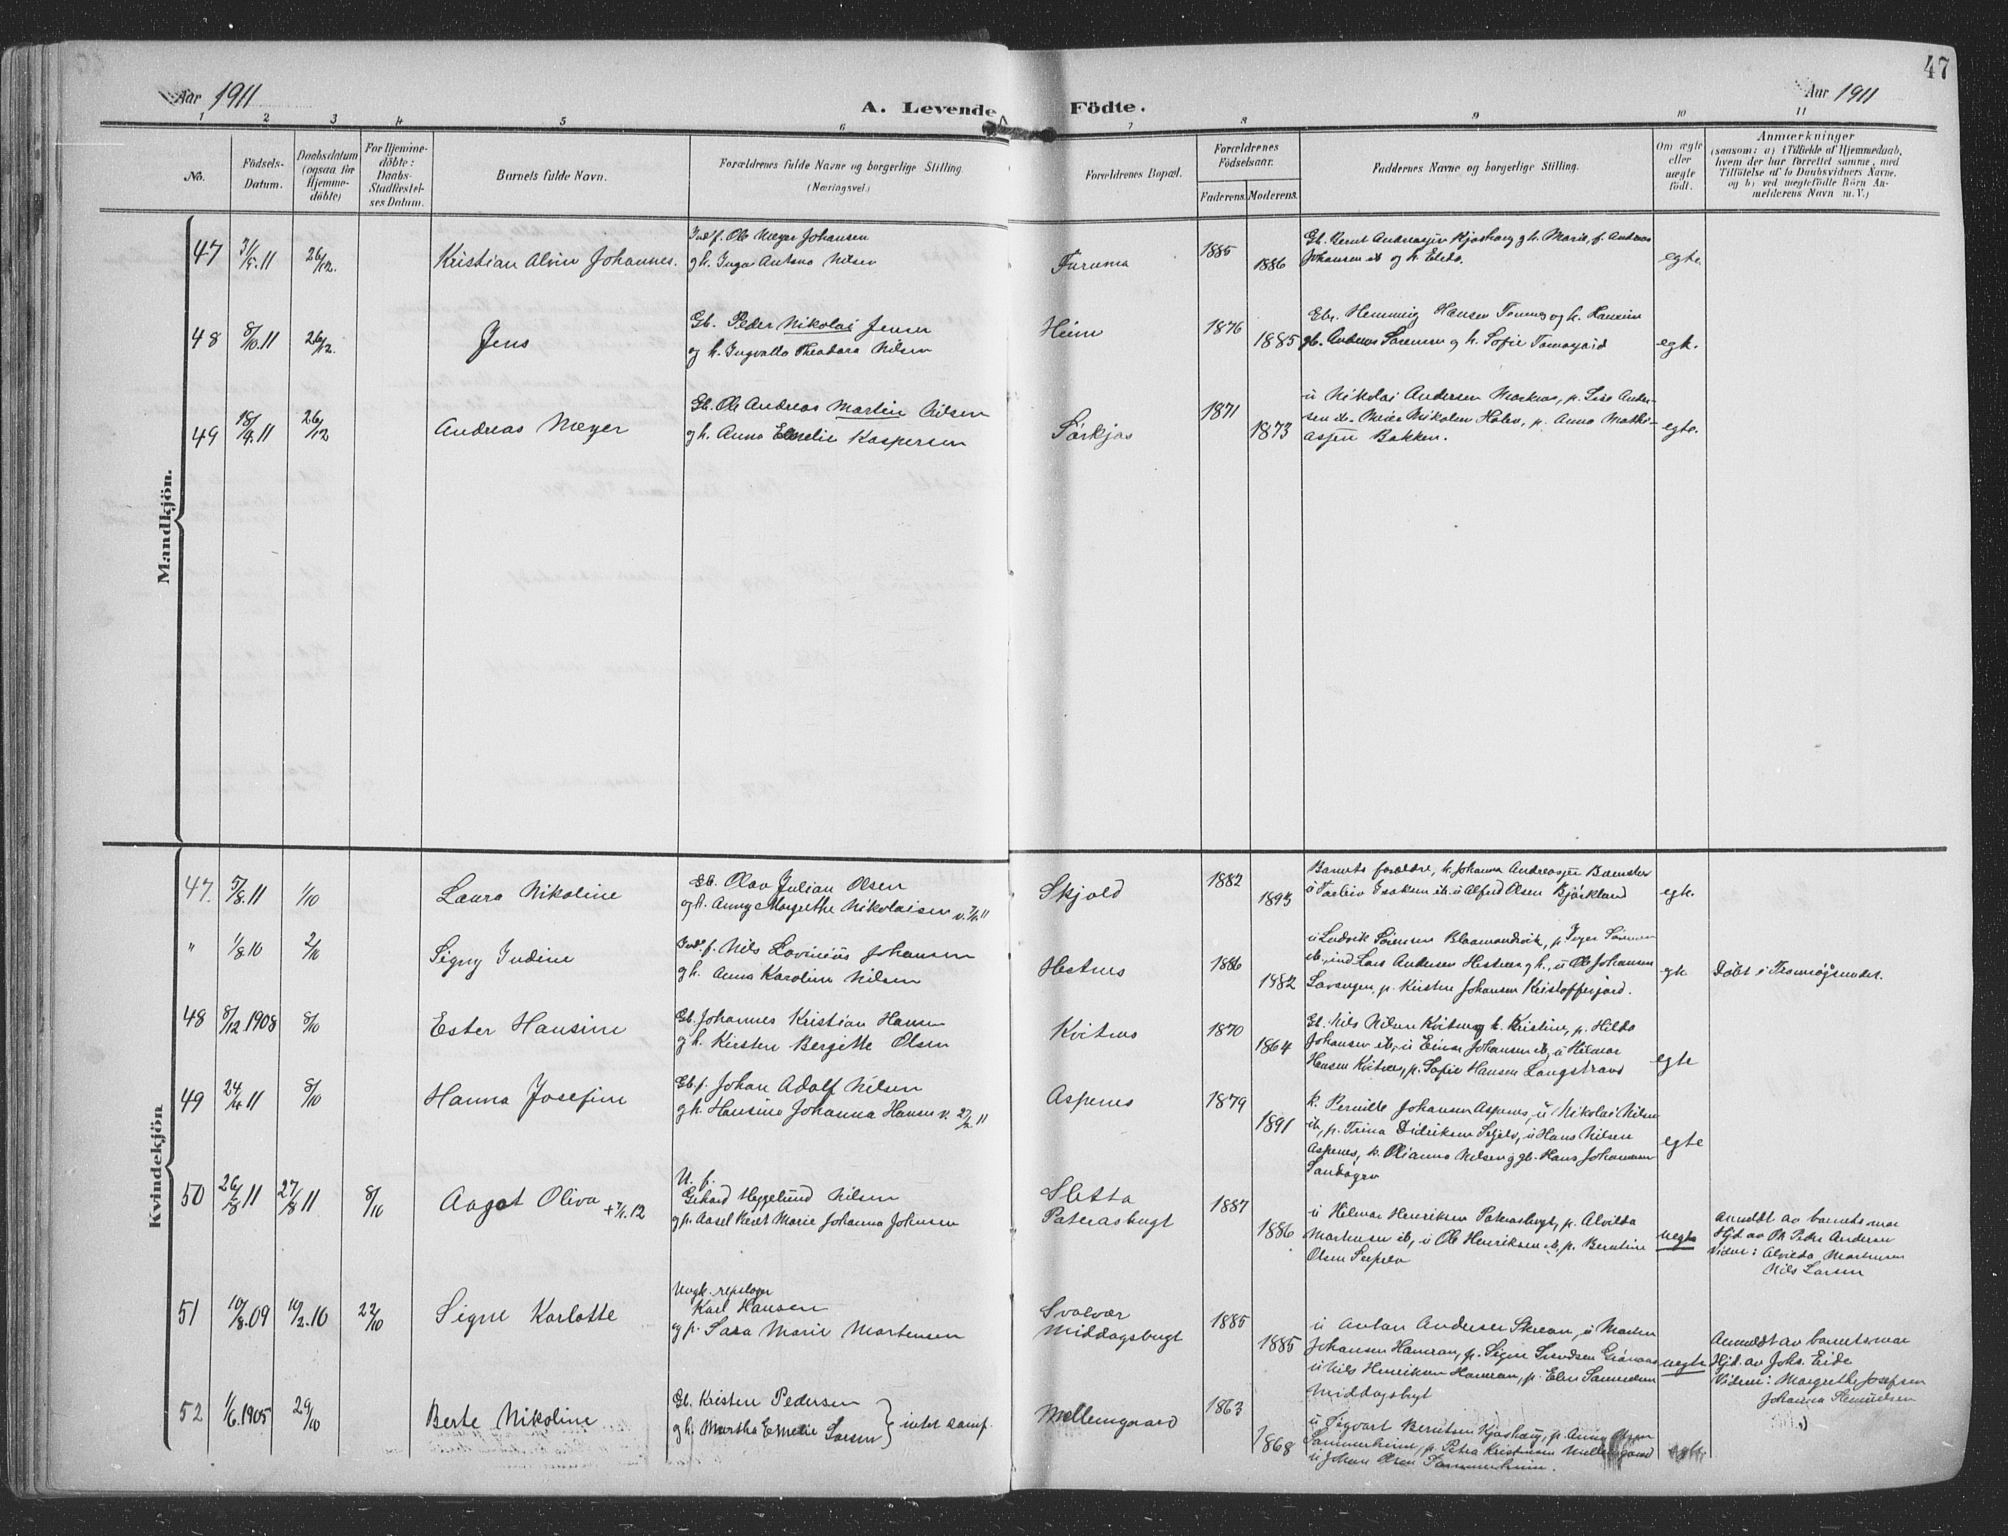 47
Aar 1911
A. Levende Födte.
Aar 1911
1 2 3 4 5 6 7 8 9 10 11
No.
Födsels-
Datum.
Daabsdatum
(ogsaa for
Hjemme-
döbte)
For Hjemme-
döbte:
Daabs-
Stadfestel-
ses Datum.
Barnets fulde Navn.
Forældrenes fulde Navne og borgerlige Stilling.
(Næringsvei.)
Forældrenes Bopæl.
Forældrenes
Födselsaar.
Faderens. Moderens.
Faddernes Navne og borgerlige Stilling.
Om ægte
eller
uægte
födt.
Anmærkninger
(saasom: a) i Tilfælde af Hjemmedaab,
hvem der har forrettet samme, med
Tilföielse af to Daabsvidners Navne.
og b) ved uægtefödte Börn An-
melderens Navn m. V.)
Mandkjön.
47 31/5.11 26/12. Kristian Alvin Johannes.
Indf. Ole Meyer Johansen
og h. Inga Antona Nilsen
Furumo 1885 1886
Gb. Bernt Andreassen Kjosberg og h. Marie, f. Andreas
Johansen ib og h. Elida.
egte.
48 8/10.11 26/12. Jens
Gb. Peder Nikolai Jensen
og h. Ingvalla Theodora Nilsen
Heim 1876 1885
Gbr. Hemming Hansen Tomas og h. Hansine
gb. Andreas Sørensen og h. Sofie Tomasjord
egte.
49 18/9.11 26/12 Andreas Meyer
Gb. Ole Andreas Martin Nilsen
og h. Anna Emelie Kaspersen
Sørkjos 1871 1873
u Nikolai Andersen Marknes, p. Lise Ander-
sen ib. Meier Nikolen Holen, p. Anna Mathi-
assen Bakken.
egte.
Kvindekjön
47. 5/8.11 1/10 Laura Nikoline
Gb. Olav Julian Olsen
og h. Anny Margrethe Nikolaisen v. 7/4.11
Skjold 1882 1893
Barnets forældre, h. Johanna Andreassen Bamsten
u Torleiv Isaksen ib. u Alfred Olsen Bjørklund
egte.
" 1/8.10 2/10 Signy Indine
Indf. Nils Lavinius Johansen
og h. Anna Karoline Nilsen
Hestnes 1886 1882
u Ludvik Sørensen Blaamandsvik, p. Inger Sørensen
ib., ind Lars Andersen Hestnes og h., u Ole Johansen
Lavangen, p. Kirstine Johansen Kristofferjord.
egte Döbt i Tromsøysundet.
48 8/12.1908 8/10 Ester Hansine
Gb. Johannes Kristian Hansen
og h. Kirsten Bergitte Olsen
Kvitnes 1870 1864
Gb. Nils Nilsen Kvitnes og h. Kristine, p. Hilda
Johansen ib, u Einar Johansen ib, u Hilmar
Hansen Kvitnes, p. Sofie Hansen Langstrand
egte
49 24/4.11 8/10 Hanna Josefine
Gb f. Johan Adolf Nilsen
og h. Hansine Johanna Hansen v. 27/2.11
Aspenes 1879 1891
k. Pernille Johansen Aspenes, u Nikolai Nilsen
ib, p. Trina Didriksen Seljelv, u Hans Nilsen
Aspenes, k. Olianna Nilsen og gb. Hans Johannesen
Sandøyra
egte
50 26/8.11 27/8.11 8/10 Aagot Oliva + 7/1.12
U. f.
Gerhard Heggelund Nilsen
og p. Aasel Beret Marie Johanna Johnsen
Sletta
Patersbugt 1887 1886
u Hilmar Henriksen Patersbugt, p. Alvilda
Martensen ib, u Ole Henriksen ib, p. Berntine
Olsen Seljelv
uegte
Anmeldt av barnets mor
Hjd. av Ole Peder Andersen
Vidner: Alvilda Martensen
Nils Larsen
51 10/8.09 10/2.10 22/10 Signe Karlotte
Ungk. repslager
Karl Hansen
og p. Sara Marie Mortensen
Svolvær
Middagsbugt 1885 1885
u Anton Andersen Skrean, u Morten
Johansen Hamran, p. Signe Svendsen Grønaas
u Nils Henriksen Hamran, p. Elen Samuelsen
Middagsbugt
uegte
Anmeldt av barnets mor
Hjd. av Johs. Eide
Vidner: Margrethe Josefsen
Johanna Samuelsen
52 1/6.1905 29/10 Berte Nikoline
Gb. Kristen Pedersen
og h. Martha Emelie Larsen } intet samf.
Mellemgaard 1863 1868
u Sigvart Berntsen Kjosberg, p. Anna Olsen
Sommerheim, p. Petra Kristensen Mellemgaard
u Johan Olsen Sommerheim.
egte